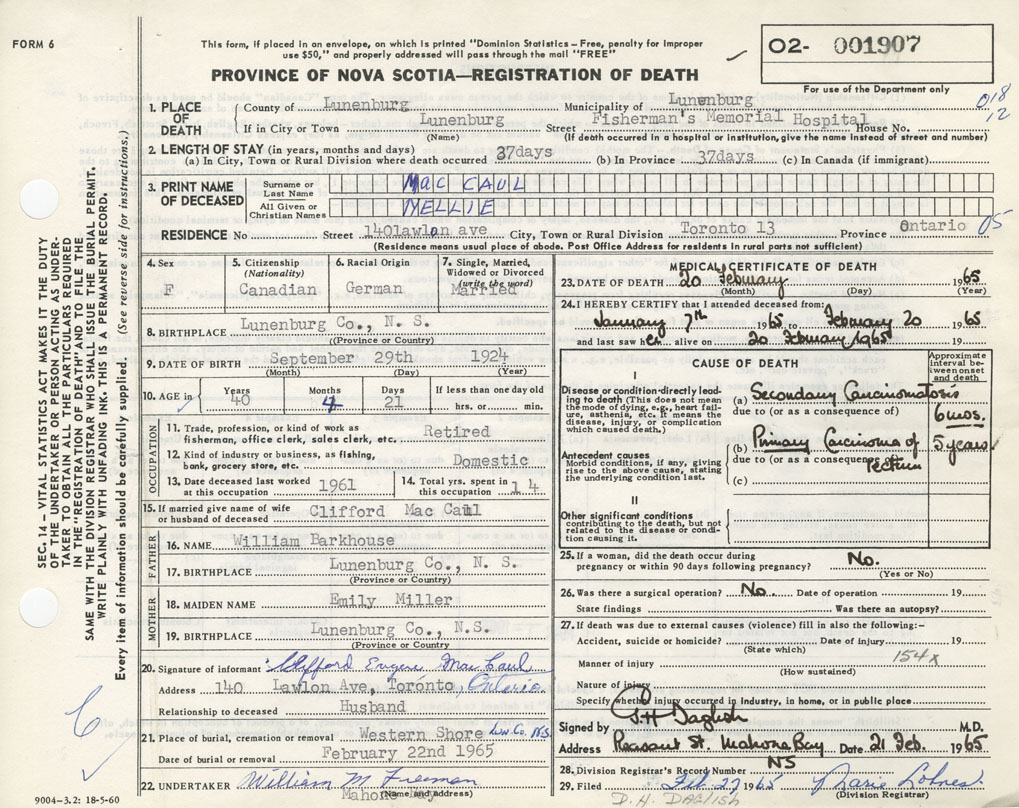 FORM 6
This form, if placed in an envelope, on which is printed "Dominion Statistics – Free, penalty for improper
use $50," and properly addressed will pass through the mail "FREE"
O2- 001907
For use of the Department only
PROVINCE OF NOVA SCOTIA—REGISTRATION OF DEATH
018
12
1. PLACE OF DEATH County of Lunenburg Municipality of Lunenburg
If in City or Town Lunenburg Street Fisherman's Memorial Hospital House No.
(Name) (If death occurred in a hospital or institution, give name instead of street and number)
2. LENGTH OF STAY (in years, months and days)
(a) In City, Town or Rural Division where death occurred 37days (b) In Province 37days (c) In Canada (if immigrant)
3. PRINT NAME OF DECEASED Surname or Last Name MAC CAUL
All Given or Christian Names NELLIE
RESIDENCE No Street 140lawlon ave City, Town or Rural Division Toronto 13 Province Ontario 05
(Residence means usual place of abode. Post Office Address for residents in rural parts not sufficient)
4. Sex F
5. Citizenship (Nationality) Canadian
6. Racial Origin German
7. Single, Married, Widowed or Divorced (write the word) Married
8. BIRTHPLACE Lunenburg Co., N. S.
(Province or Country)
9. DATE OF BIRTH September 29th 1924
(Month) (Day) (Year)
10. AGE in Years 40 Months 4 Days 21 If less than one day old hrs. or min.
OCCUPATION
11. Trade, profession, or kind of work as
fisherman, office clerk, sales clerk, etc. Retired
12. Kind of industry or business, as fishing,
bank, grocery store, etc. Domestic
13. Date deceased last worked at this occupation 1961
14. Total yrs. spent in this occupation 14
15. If married give name of wife
or husband of deceased Clifford Mac Caul
FATHER
16. NAME William Barkhouse
17. BIRTHPLACE Lunenburg Co., N. S.
(Province or Country)
MOTHER
18. MAIDEN NAME Emily Miller
19. BIRTHPLACE Lunenburg Co., N.S.
(Province or Country)
20. Signature of informant Clifford Eugene Mac Caul
Address 140 Lawlon Ave, Toronto, Ontario.
Relationship to deceased Husband
21. Place of burial, cremation or removal Western Shore Lun. Co. N.S.
Date of burial or removal February 22nd 1965
22. UNDERTAKER William M Freeman
Mahone Bay
(Name and address)
9004–3.2: 18-5-60
MEDICAL CERTIFICATE OF DEATH
23. DATE OF DEATH 20 February 1965
(Month) (Day) (Year)
24. I HEREBY CERTIFY that I attended deceased from:
January 7th 1965 to February 20 1965
and last saw her alive on 20 February 1965
CAUSE OF DEATH
Approximate interval between onset and death
I
Disease or condition directly leading to death (This does not mean the mode of dying, e.g., heart failure, asthenia, etc. It means the disease, injury, or complication which caused death.)
(a) Secondary Carcinomatosis 6 mos.
due to (or as a consequence of)
Antecedent causes
Morbid conditions, if any, giving rise to the above cause, stating the underlying condition last.
(b) Primary Carcinoma of rectum 5 years
due to (or as a consequence of)
(c)
II
Other significant conditions contributing to the death, but not related to the disease or condition causing it.
25. If a woman, did the death occur during
pregnancy or within 90 days following pregnancy? No.
(Yes or No)
26. Was there a surgical operation? No. Date of operation 19
State findings Was there an autopsy?
27. If death was due to external causes (violence) fill in also the following:–
Accident, suicide or homicide? Date of injury 19
(State which)
154x
Manner of injury
(How sustained)
Nature of injury
Specify whether injury occurred in industry, in home, or in public place
Signed by J H Daglish M.D.
Address Pleasant St. Mahone Bay NS Date 21 Feb. 1965
28. Division Registrar's Record Number
29. Filed Feb 27 1965 Marie Lohnes
(Division Registrar)
D. H. DAGLISH
SEC. 14 – VITAL STATISTICS ACT MAKES IT THE DUTY
OF THE UNDERTAKER OR PERSON ACTING AS UNDERTAKER
TO OBTAIN ALL THE PARTICULARS REQUIRED
IN THE "REGISTRATION OF DEATH" AND TO FILE THE
SAME WITH THE DIVISION REGISTRAR WHO SHALL ISSUE THE BURIAL PERMIT.
WRITE PLAINLY WITH UNFADING INK. THIS IS A PERMANENT RECORD.
Every item of information should be carefully supplied. (See reverse side for instructions.)